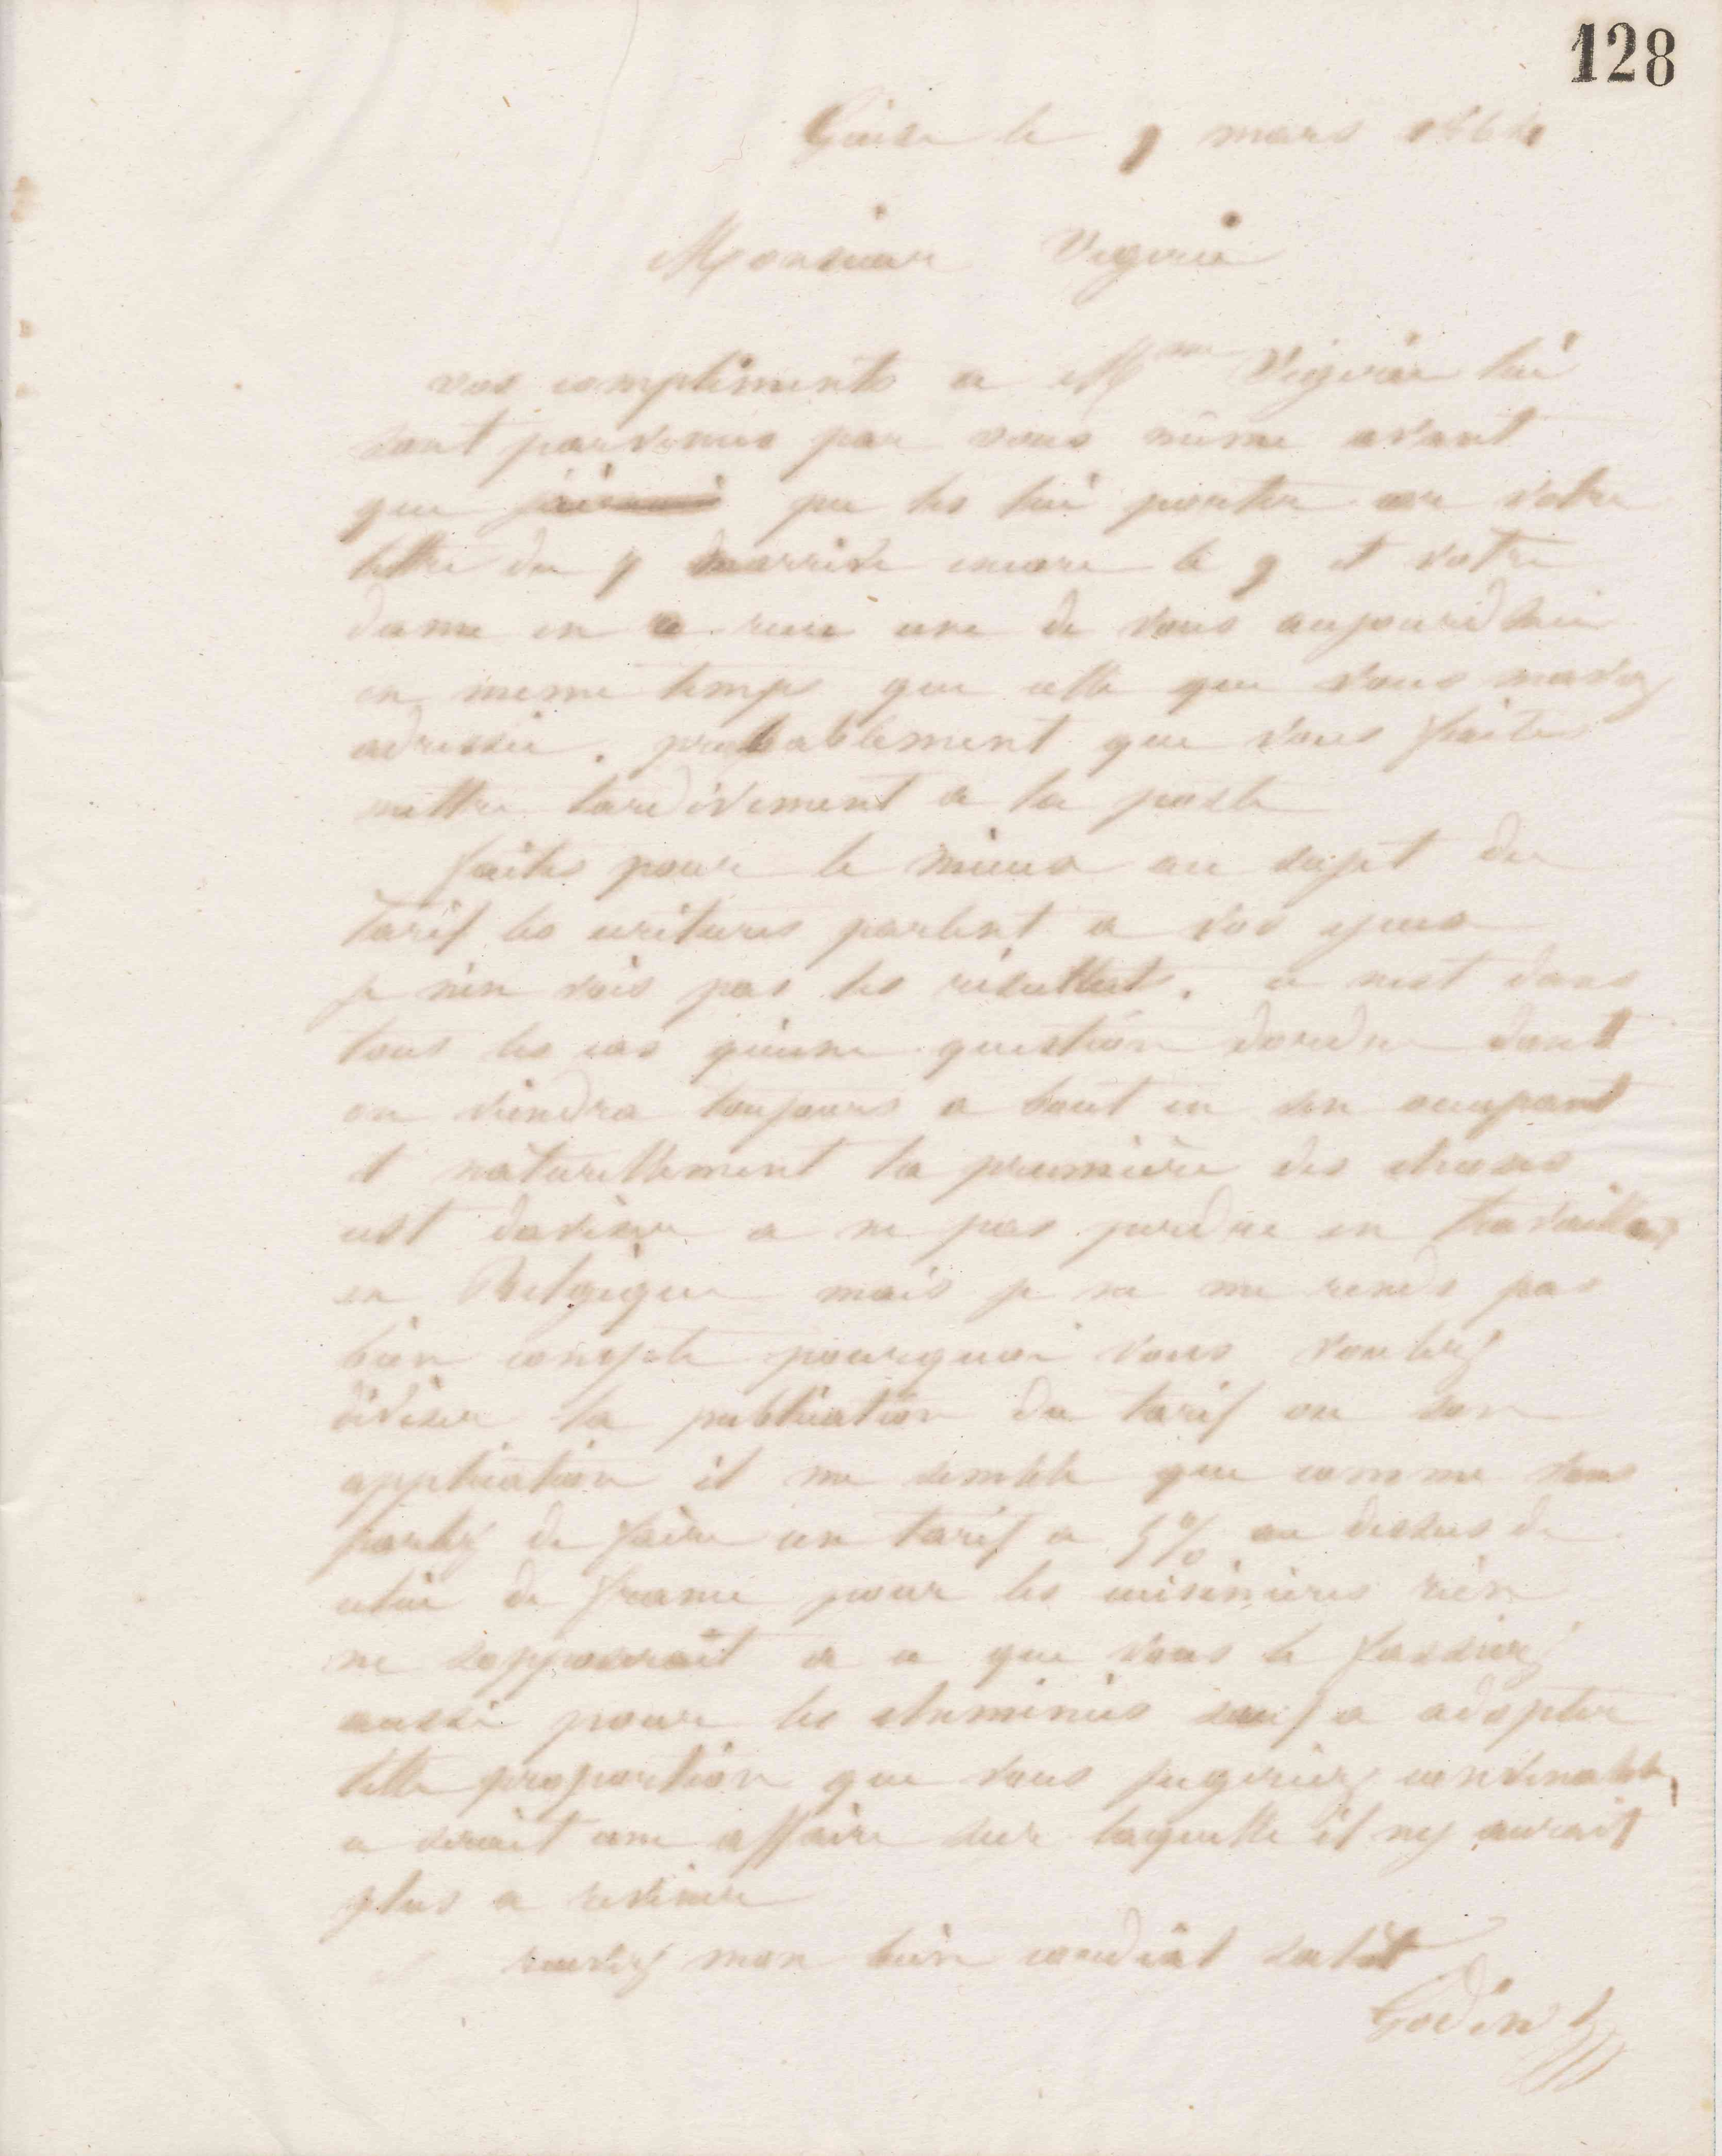 128
Guise le 9 mars 1864
Monsieur Vigerie
vos compliments a Mme Vigerie lui
sont parvenus par vous même avant
que pu les lui porter car votre
lettre du 7 marrive encore le 9 et votre
dame en a recu une de vous aujourdhui
en meme temps que celle que vous mavez
adressée. probablement que vous faites
mettre tardivement a la poste
faites pour le mieux au sujet du
tarif les ecritures parlent a vos yeux
je nen vois pas les résultats. ce nest dans
tous les cas quune question dordre dont
on viendra toujours a bout en sen occupant
et naturellement la première des choses
est darriver a ne pas perdre en travaillant
en Belgique mais je ne me rends pas
bien compte pourquoi vous voulez
diviser la publication du tarif ou son
application il me semble que comme vous
parlez de faire un tarif a 5% au dessus de
celui de france pour les cuisinières rien
ne sopposerait a ce que vous le fassiez
aussi pour les cheminées sauf a adopter
telle proportion que vous jugeriez convenable,
ce serait une affaire sur laquelle il ny aurait
plus a revenir
recevez mon bien cordial salut
Godin